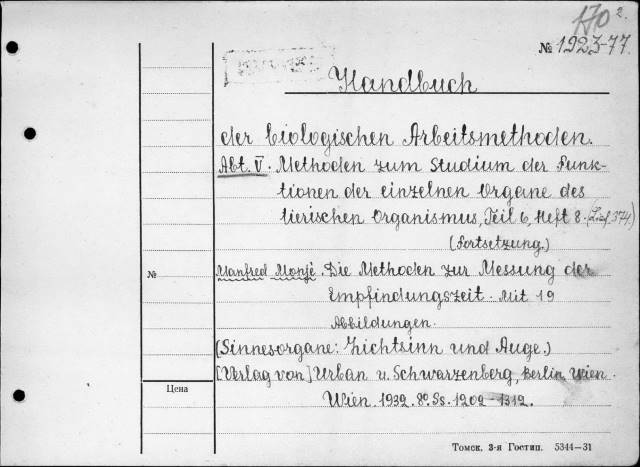 170 2.
№ 1923-77.
Handbuch
der biologischen Arbeitsmethoden.
Abt. V. Methoden zum Studium der Funk-
tionen der einzelnen Organe des
tierischen Organismus, Teil 6, Heft 8. (Lief. 374)
(Fortsetzung.)
№
Manfred Monjè. Die Methoden zur Messung der
Empfindungszeit. Mit 19
Abbildungen.
(Sinnesorgane: Lichtsinn und Auge.)
[Verlag von] Urban u. Schwarzenberg, Berlin, Wien.
Цена
Wien. 1932. 8º. Ss. 1202-1312.
Томск. 3-я Гостип. 5344—31